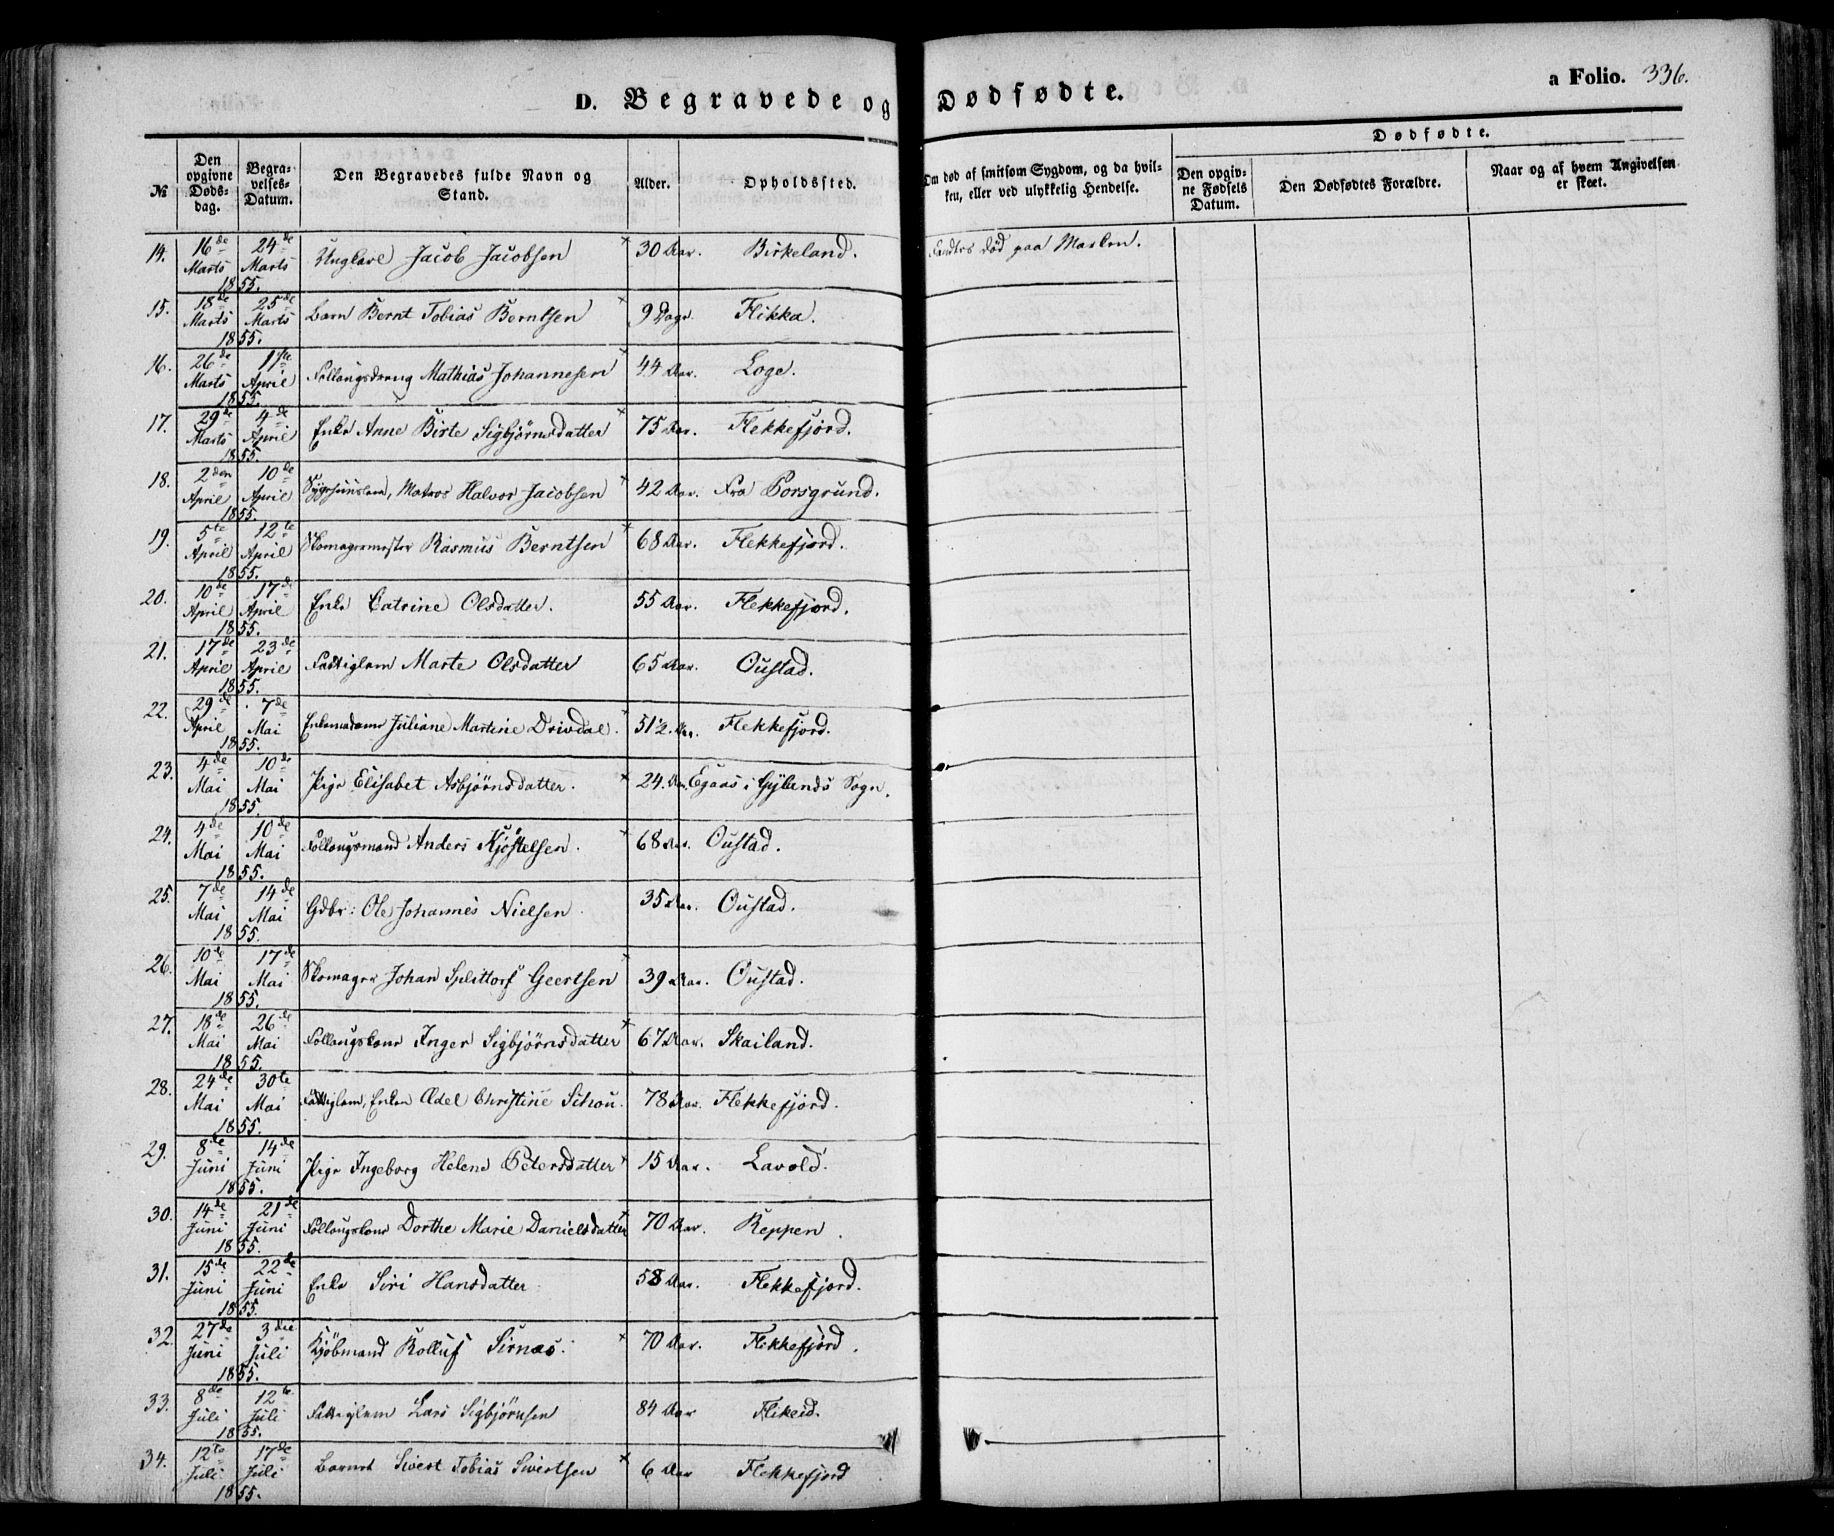 D. Begravede og Dødfødte.
a Folio. 336.
№ Den opgivne Døds-dag. Begra-velses-Datum. Den Begravedes fulde Navn og Stand. Alder. Opholdssted. Om død af smitsom Sygdom, og da hvil-ken, eller ved ulykkelig Hendelse. Dødfødte. Den opgiv-ne Fødsels Datum. Den Dødfødtes Forældre. Naar og af hvem Angivelsen er skeet.
14. 16de Marts 24de Marts 1855. Ungkarl Jacob Jacobsen 30 Aar. Birkeland. Fandtes død paa Marken.
15. 18de Marts 25de Marts 1855. Barn Bernt Tobias Berntsen 9 Dage Flikka.
16. 26de Marts 1ste April 1855. Mathias Johannesen 44 Aar. Loge.
17. 29de Marts 4de April 1855. Enke Anne Birte Sigbjørnsdatter 75 Aar. Flekkefjord.
18. 2den April 10de April 1855. Matros Halvor Jacobsen 42 Aar. Fra Porsgrund.
19. 5te April 12te April 1855. Skomagermester Rasmus Berntsen 68 Aar. Flekkefjord.
20. 10de April 17de April 1855. Enke Catrine Olsdatter. 55 Aar. Flekkefjord.
21. 17de April 23de April 1855. Fattiglem Marte Olsdatter 65 Aar. Oustad.
22. 29de April 7de Mai 1855. Enkemadame Juliane Martine Drivdal. 51½ Aar. Flekkefjord.
23. 4de Mai 10de Mai 1855. Pige Elisabet Asbjørnsdatter. 24. Aar. Egaas i Gylands Sogn.
24. 4de Mai 10de Mai 1855. Follaugsmand Anders Kjøstelsen. 68 Aar. Oustad.
25. 7de Mai 14de Mai 1855. Gdbr: Ole Johannes Nielsen 35 Aar. Oustad.
26. 10de Mai 17de Mai 1855. Skomager Johan Splittorf Geertsen 39 Aar. Oustad.
27. 18de Mai 26de Mai 1855. Follaugskone Inger Sigbjørnsdatter 67 Aar. Skailand.
28. 24de Mai 30te Mai 1855. Fattiglem, Enken Ædel Christine Schou. 78 Aar. Flekkefjord.
29. 8de Juni 14de Juni 1855. Pige Ingeborg Helene Petersdatter 15 Aar. Lavold.
30. 14de Juni 21de Juni 1855. Follaugskone Dorthe Marie Danielsdatter 70 Aar. Reppen.
31. 15de Juni 22de Juni 1855. Enke Siri Hansdatter 58 Aar. Flekkefjord.
32. 27de Juni 3die Juli 1855. Kjøbmand Rolluf Sirnæs. 70 Aar. Flekkefjord.
33. 8de Juli 12te Juli 1855. Fattiglem Lars Sigbjørnsen 84 Aar Flikeid.
34. 12te Juli 17de Juli 1855. Barnet Sivert Tobias Sivertsen 6 Aar Flekkefjord